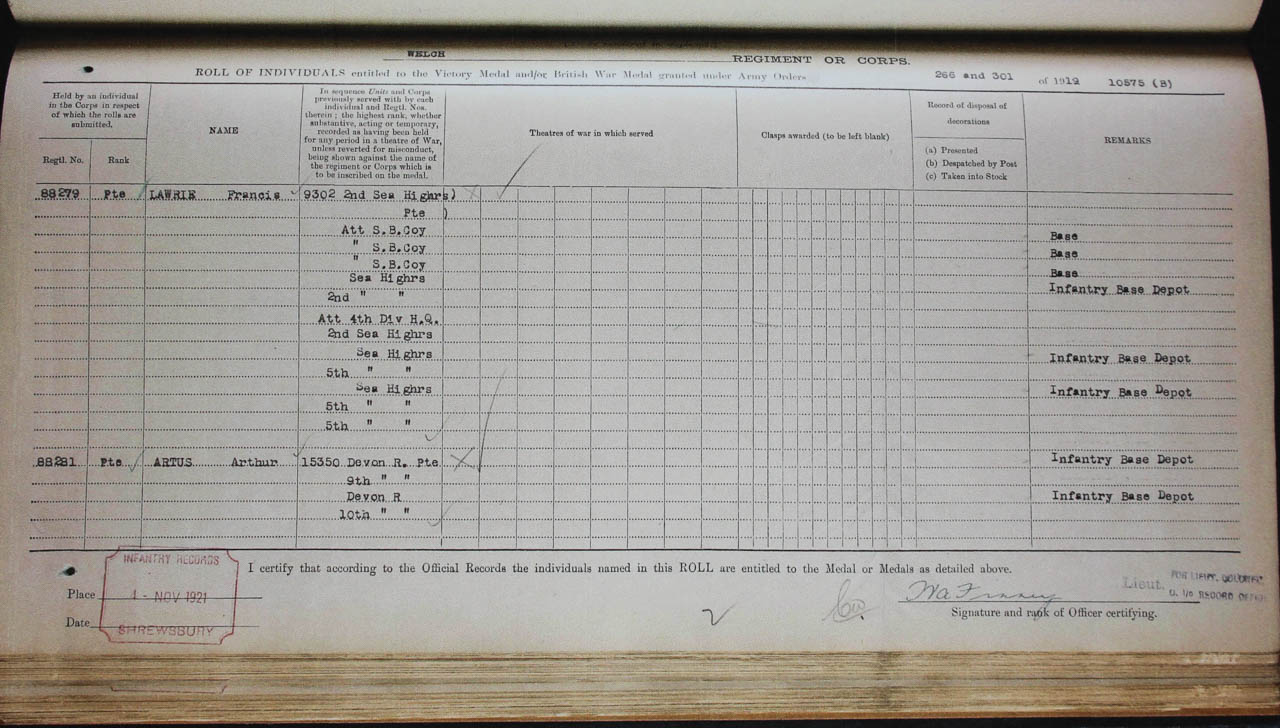 WELCH REGIMENT OR CORPS.
ROLL OF INDIVIDUALS entitled to the Victory Medal and/or British War Medal granted under Army Orders 266 and 301 of 1919 10575 (B)
Held by an individual
in the Corps in respect
of which the rolls are
submitted.
Regtl. No.
Rank
NAME
In sequence Units and Corps
previously served with by each
individual and Regtl. Nos.
therein; the highest rank, whether
substantive, acting or temporary,
recorded as having been held
for any period in a theatre of War,
unless reverted for misconduct,
being shown against the name of
the regiment or Corps which is
to be inscribed on the medal.
Theatres of war in which served
Clasps awarded (to be left blank)
Record of disposal of
decorations
(a) Presented
(b) Despatched by Post
(c) Taken into Stock
REMARKS
88279 Pte LAWRIE Francis 9302 2nd Sea Highrs)
Pte )
Att S.B.Coy Base
" S.B.Coy Base
" S.B.Coy Base
Sea Highrs Infantry Base Depot
2nd " "
Att 4th Div H.Q.
2nd Sea Highrs
Sea Highrs Infantry Base Depot
5th " "
Sea Highrs Infantry Base Depot
5th " "
5th " "
88281 Pte ARTUS Arthur 15350 Devon R. Pte X Infantry Base Depot
9th " "
Devon R Infantry Base Depot
10th " "
I certify that according to the Official Records the individuals named in this ROLL are entitled to the Medal or Medals as detailed above.
Place
Date
INFANTRY RECORDS
4 - NOV 1921
SHREWSBURY
Lieut.
FOR LIEUT. COLONEL
O. i/o RECORD OFFICE
Signature and rank of Officer certifying.